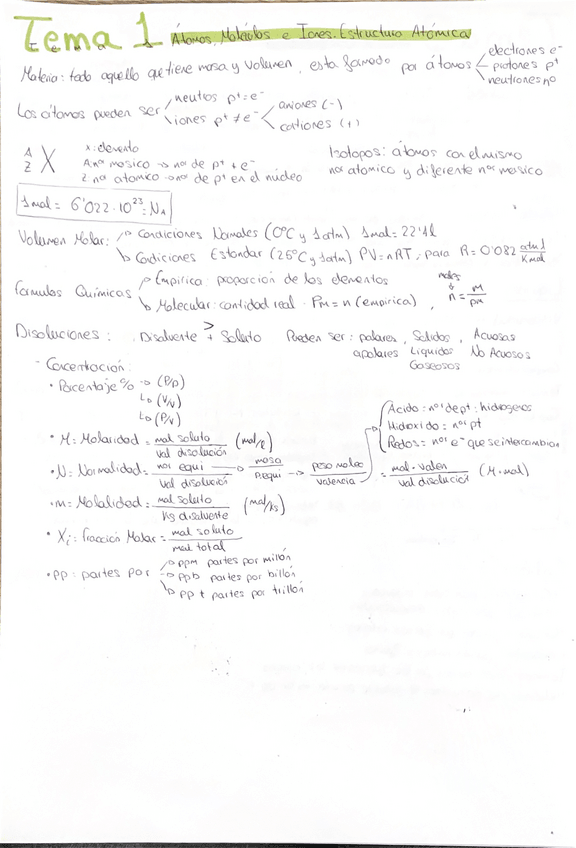 Tema 1 Átomos, Moléculas e Iones. Estructura Atómica
Materia: todo aquello que tiene masa y volumen, esta formado por átomos electrones e-
protones p+
neutrones nº
Los átomos pueden ser neutros p+ = e-
iones p+ ≠ e- aniones (-)
cationes (+)
A
Z X
x: elemento
A: nº masico → nº de p+ + e-
Z nº atomico → nº de p+ en el núcleo
Isotopos: átomos con el mismo
nº atomico y diferente nº masico
1 mol = 6'022 · 10^23 = NA
Volumen Molar: Condiciones Normales (0ºC y 1 atm) 1 mol = 22'4 l
Condiciones Estandar (25ºC y 1 atm) PV = nRT, para R = 0'082 atm l / K mol
Formulas Químicas Empirica: proporción de los elementos
Molecular: cantidad real · PM = n (empirica),
moles
n = M / PM
Disoluciones: Disolvente > + Soluto Pueden ser: polares, Solidos, Acuosas
apolares Liquidos No Acuosos
Gaseosos
- Concentración:
• Porcentaje % → (P/P)
(V/V)
(P/V)
• M = Molaridad = mol soluto / vol disolución (mol/l)
• N = Normalidad = nº equi / vol disolución → masa / P.equi → peso molec / valencia
Acido: nº de p+: hidrogenos
Hidroxido: nº pt
Redox: nº e- que se intercambian
= mol · valen / vol disolucion (M · mol)
• m = Molalidad = mol soluto / Kg disolvente (mol/kg)
• Xi = Fracción Molar = mol soluto / mol total
• PP: partes por ppm partes por millón
ppb partes por billón
pp t partes por trillón